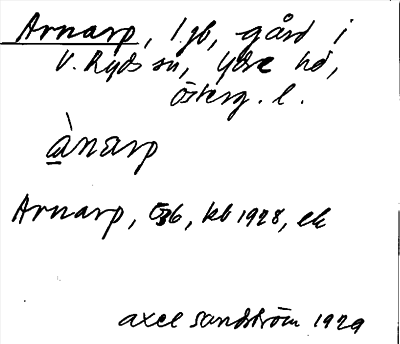 Arnarp, l.jb, gård i
V. Ryds sn, Ydre hd,
Österg. l.
ànarp
Arnarp, Egb, kb 1928, ek
Axel Sandström 1929